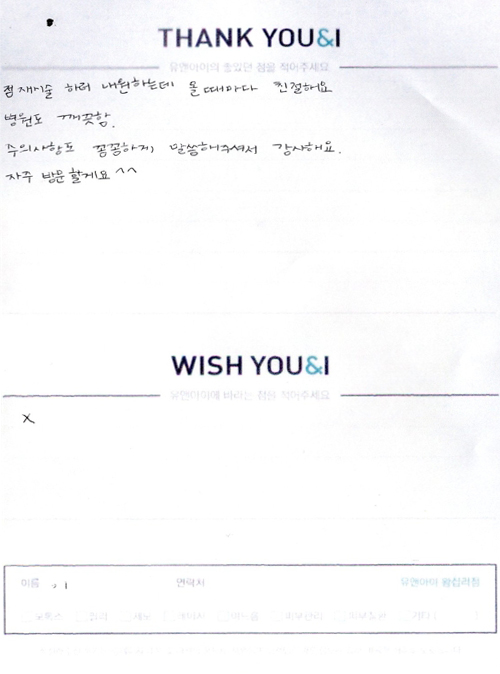 THANK YOU&I
유앤아이의 좋았던 점을 적어주세요
점 재시술 하러 내원하는데 올때마다 친절해요
병원도 깨끗함.
주의사항도 꼼꼼하게 말씀해주셔서 감사해요.
자주 방문할게요^^
WISH YOU&I
유앤아이에 바라는 점을 적어주세요
X
이름 연락처 유앤아이 왕십리점
보톡스 필러 제모 레이저 여드름 피부관리 피부질환 기타 ( )